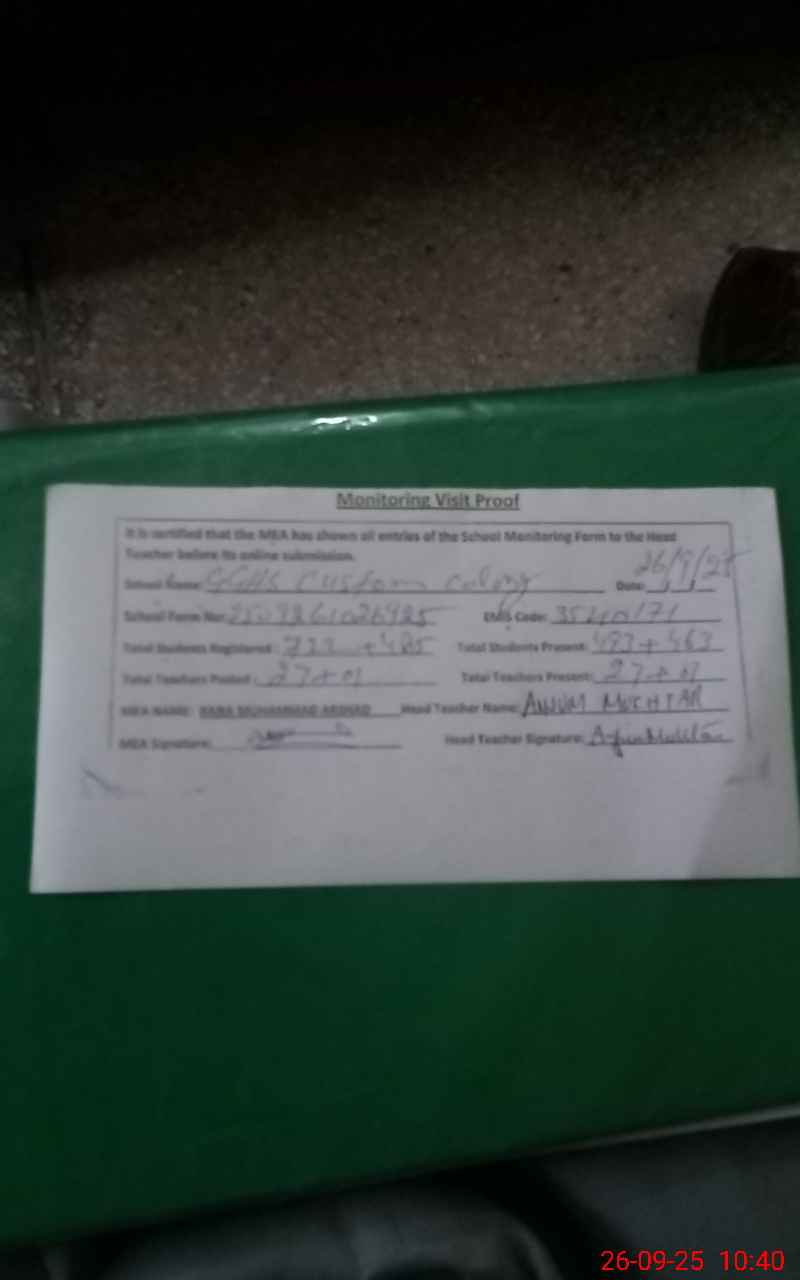 Monitoring Visit Proof
It is certified that the MEA has shown all entries of the School Monitoring Form to the Head
Teacher before its online submission.
School Name: GGHS Custom Colony Date: 26/9/25
School Form No: EMIS Code: 35440171
Total Students Registered: +485 Total Students Present: 493+463
Total Teachers Posted: 27+01 Total Teachers Present: 27+01
MEA NAME: RANA MUHAMMAD ARSHAD Head Teacher Name: MUKHTAR
MEA Signature: Head Teacher Signature:
26-09-25 10:40